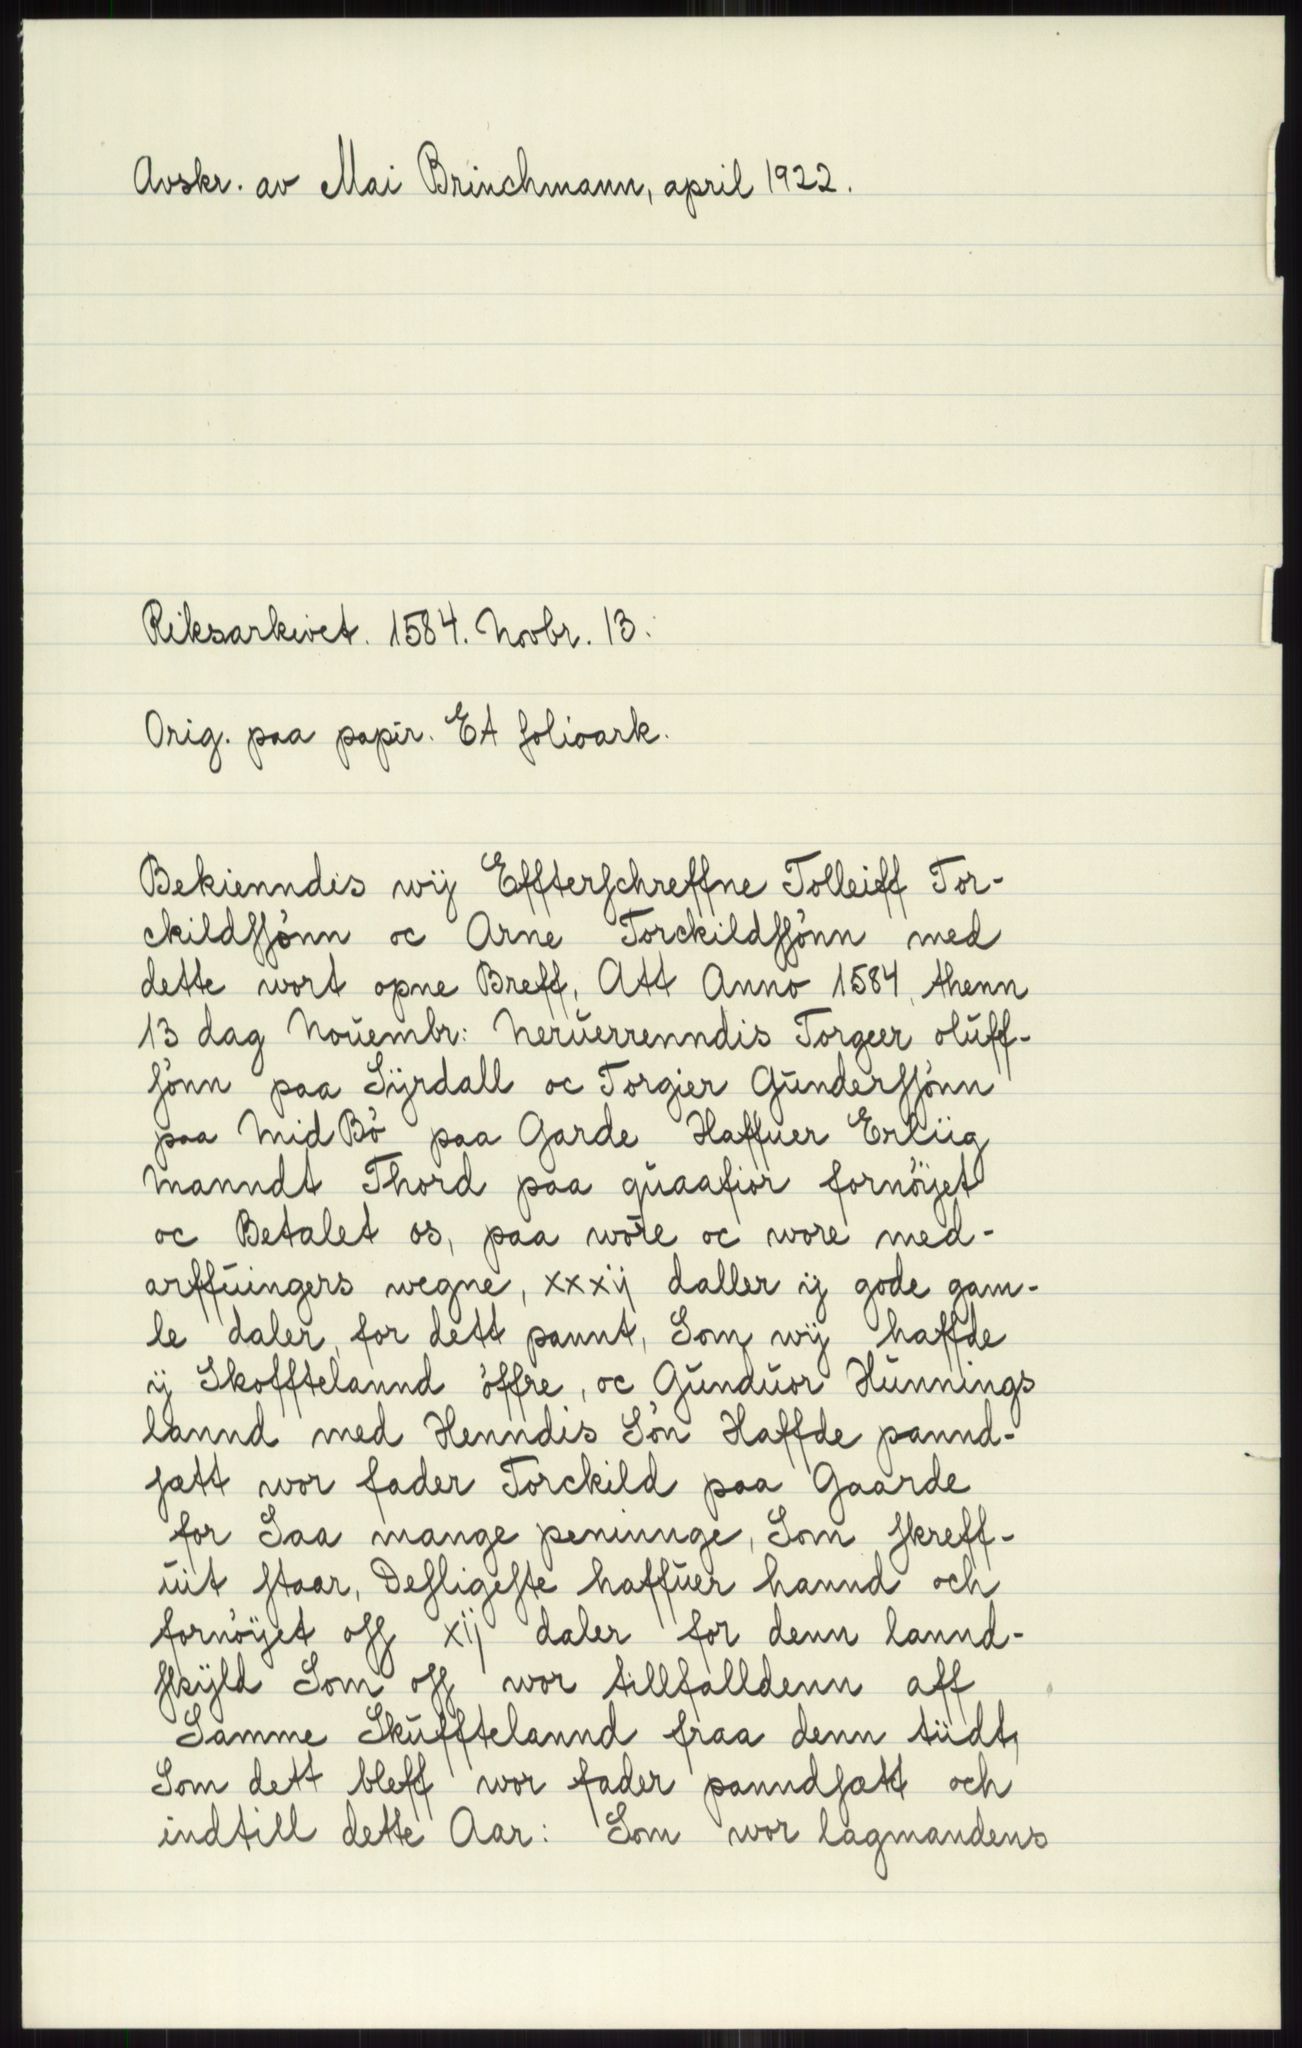 Avskr. av Mai Brinchmann, april 1922.
Riksarkivet. 1584. Novbr. 13.
Orig. paa papir. Et folioark.
Bekienndis wij Effterschreffne Tolleiff Tor-
ckildssønn oc Arne Torckildssønn med
dette wort opne Breff, Att Anno 1584, thenn
13 dag Nouembr: Neruerrenndis Torgeer oluff-
sønn paa Sÿrdall oc Torgier Gunderssønn
paa Mid Bø paa Garde Haffuer Erliig
Manndt Thord paa quaafior fornøÿet
oc Betalet os, paa wore oc wore med-
arffuingers wegne, xxxij daller ij gode gam-
le daler, for dett pannt, Som wij haffde
ij Skofftelannd øffre, oc Gunduor Hunnings
lannd med Henndis Søn Haffde pannd-
sætt wor fader Torckild paa Gaarde
for Saa mange peninnge, Som skreff-
uit staar, Desligeste haffuer hannd och
fornøÿet oss xij daler for denn lannd-
skÿld Som oss wor tillfalldenn aff
Samme Skufftelannd fraa denn tiidt,
Som dett bleff wor fader panndsatt och
indtill dette Aar: Som wor lagmandens